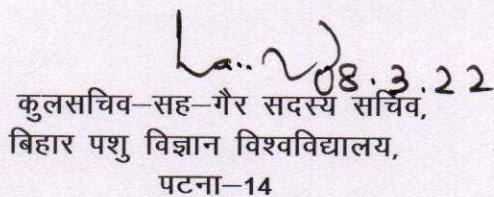 08.3.22
कुलसचिव–सह–गैर सदस्य सचिव,
बिहार पशु विज्ञान विश्वविद्यालय,
पटना–14